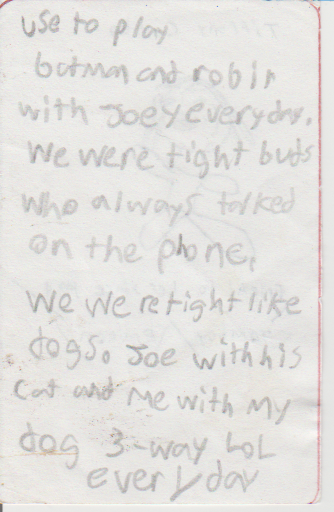 use to play
batman and robin
with Joey everyday.
We were tight buds
who always talked
on the phone.
We were tight like
dogs. Joe with his
cat and me with my
dog 3-way LOL
everyday